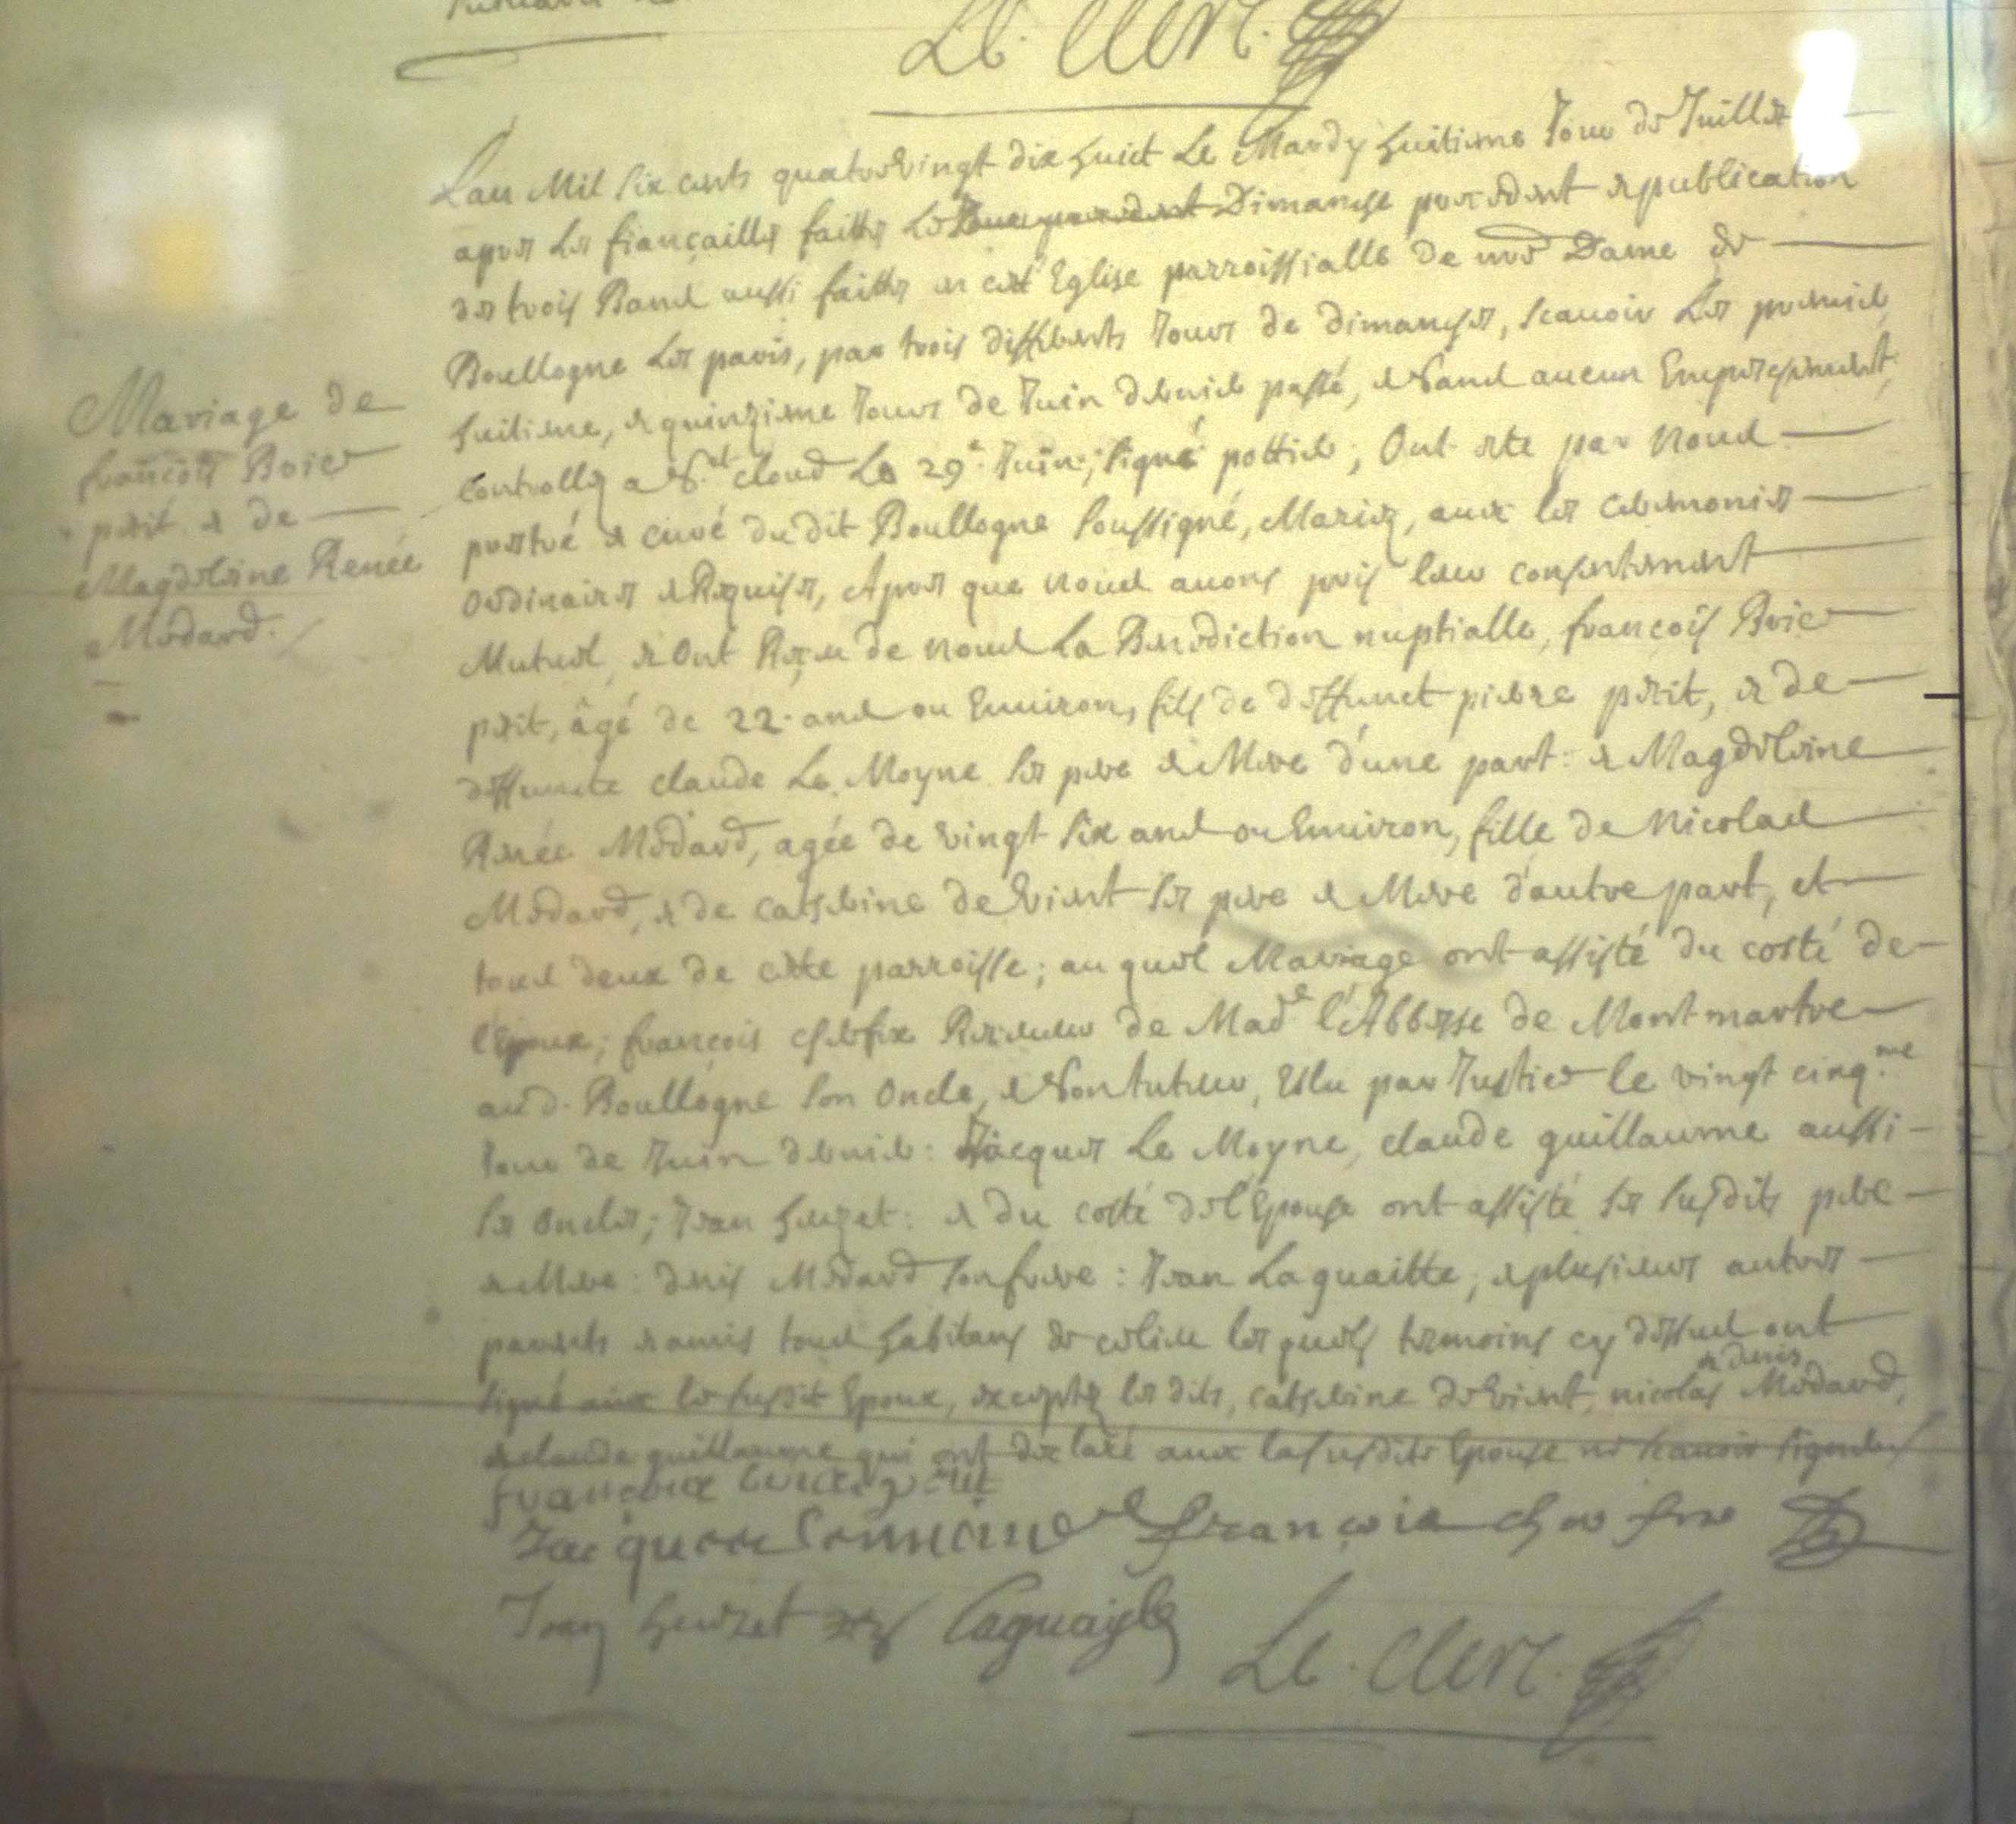 Le Clerc.
Lan Mil six cents quatrevingt dix huict Le Mardy huitieme Jour de Juillet
apres les fiançailles faittes le Dimanche precedent et publication
des trois Bans aussi faittes en cette Eglise parroissialle de nre Dame de
Boullogne les paris, par trois differents Jours de dimanches, scauoir les premier,
huitieme, et quinzieme Jours de Juin dernier passé, et sans aucun Empeschement,
controllez a St. cloud Le 29e Juin; signé pottier; Ont este par Nous
prestre et curé du dit Boullogne soussigné, Mariez, auec les ceremonies
Ordinaires et Requises, Apres que nous auons pris leur consentement
Mutuel, et Ont Reçeu de nous La Benediction nuptialle, francois Brice
Mariage de
francois Brice
petit et de
Magdeleine Renée
Medard.
petit, âgé de 22 ans ou Enuiron, fils de deffunct pierre petit, et de
deffuncte claude Le Moyne ses pere et Mere d'une part: et Magdeleine
Renée Medard, agée de vingt six ans ou Enuiron, fille de Nicolas
Medard, et de catherine de vient ses pere et Mere d'autre part, et
tous deux de cette parroisse; au quel Mariage ont assisté du costé de
l'Epoux; francois cherfix Receueur de Made l'Abbesse de Montmartre
aud. Boullogne son Oncle, et son tuteur, Eslu par Justice le vingt cinq.me
Jour de Juin dernier: Jacques Le Moyne, claude guillaume aussi
ses Oncles; Jean heuzet: et du costé de l'Epouse ont assisté ses susdits pere
et Mere: denis Medard son frere: Jean Laguaitte, et plusieurs autres
parents et amis tous habitans de ce lieu lesquels temoins cy dessus ont
signé auec le susdit Epoux, exceptez les dits, catherine de vient, nicolas et denis Medard,
et claude guillaume qui ont declaré auec la susdite Epouse ne scauoir signer
Jacques francois
Jean heuzet Laguaitte
Le Clerc.